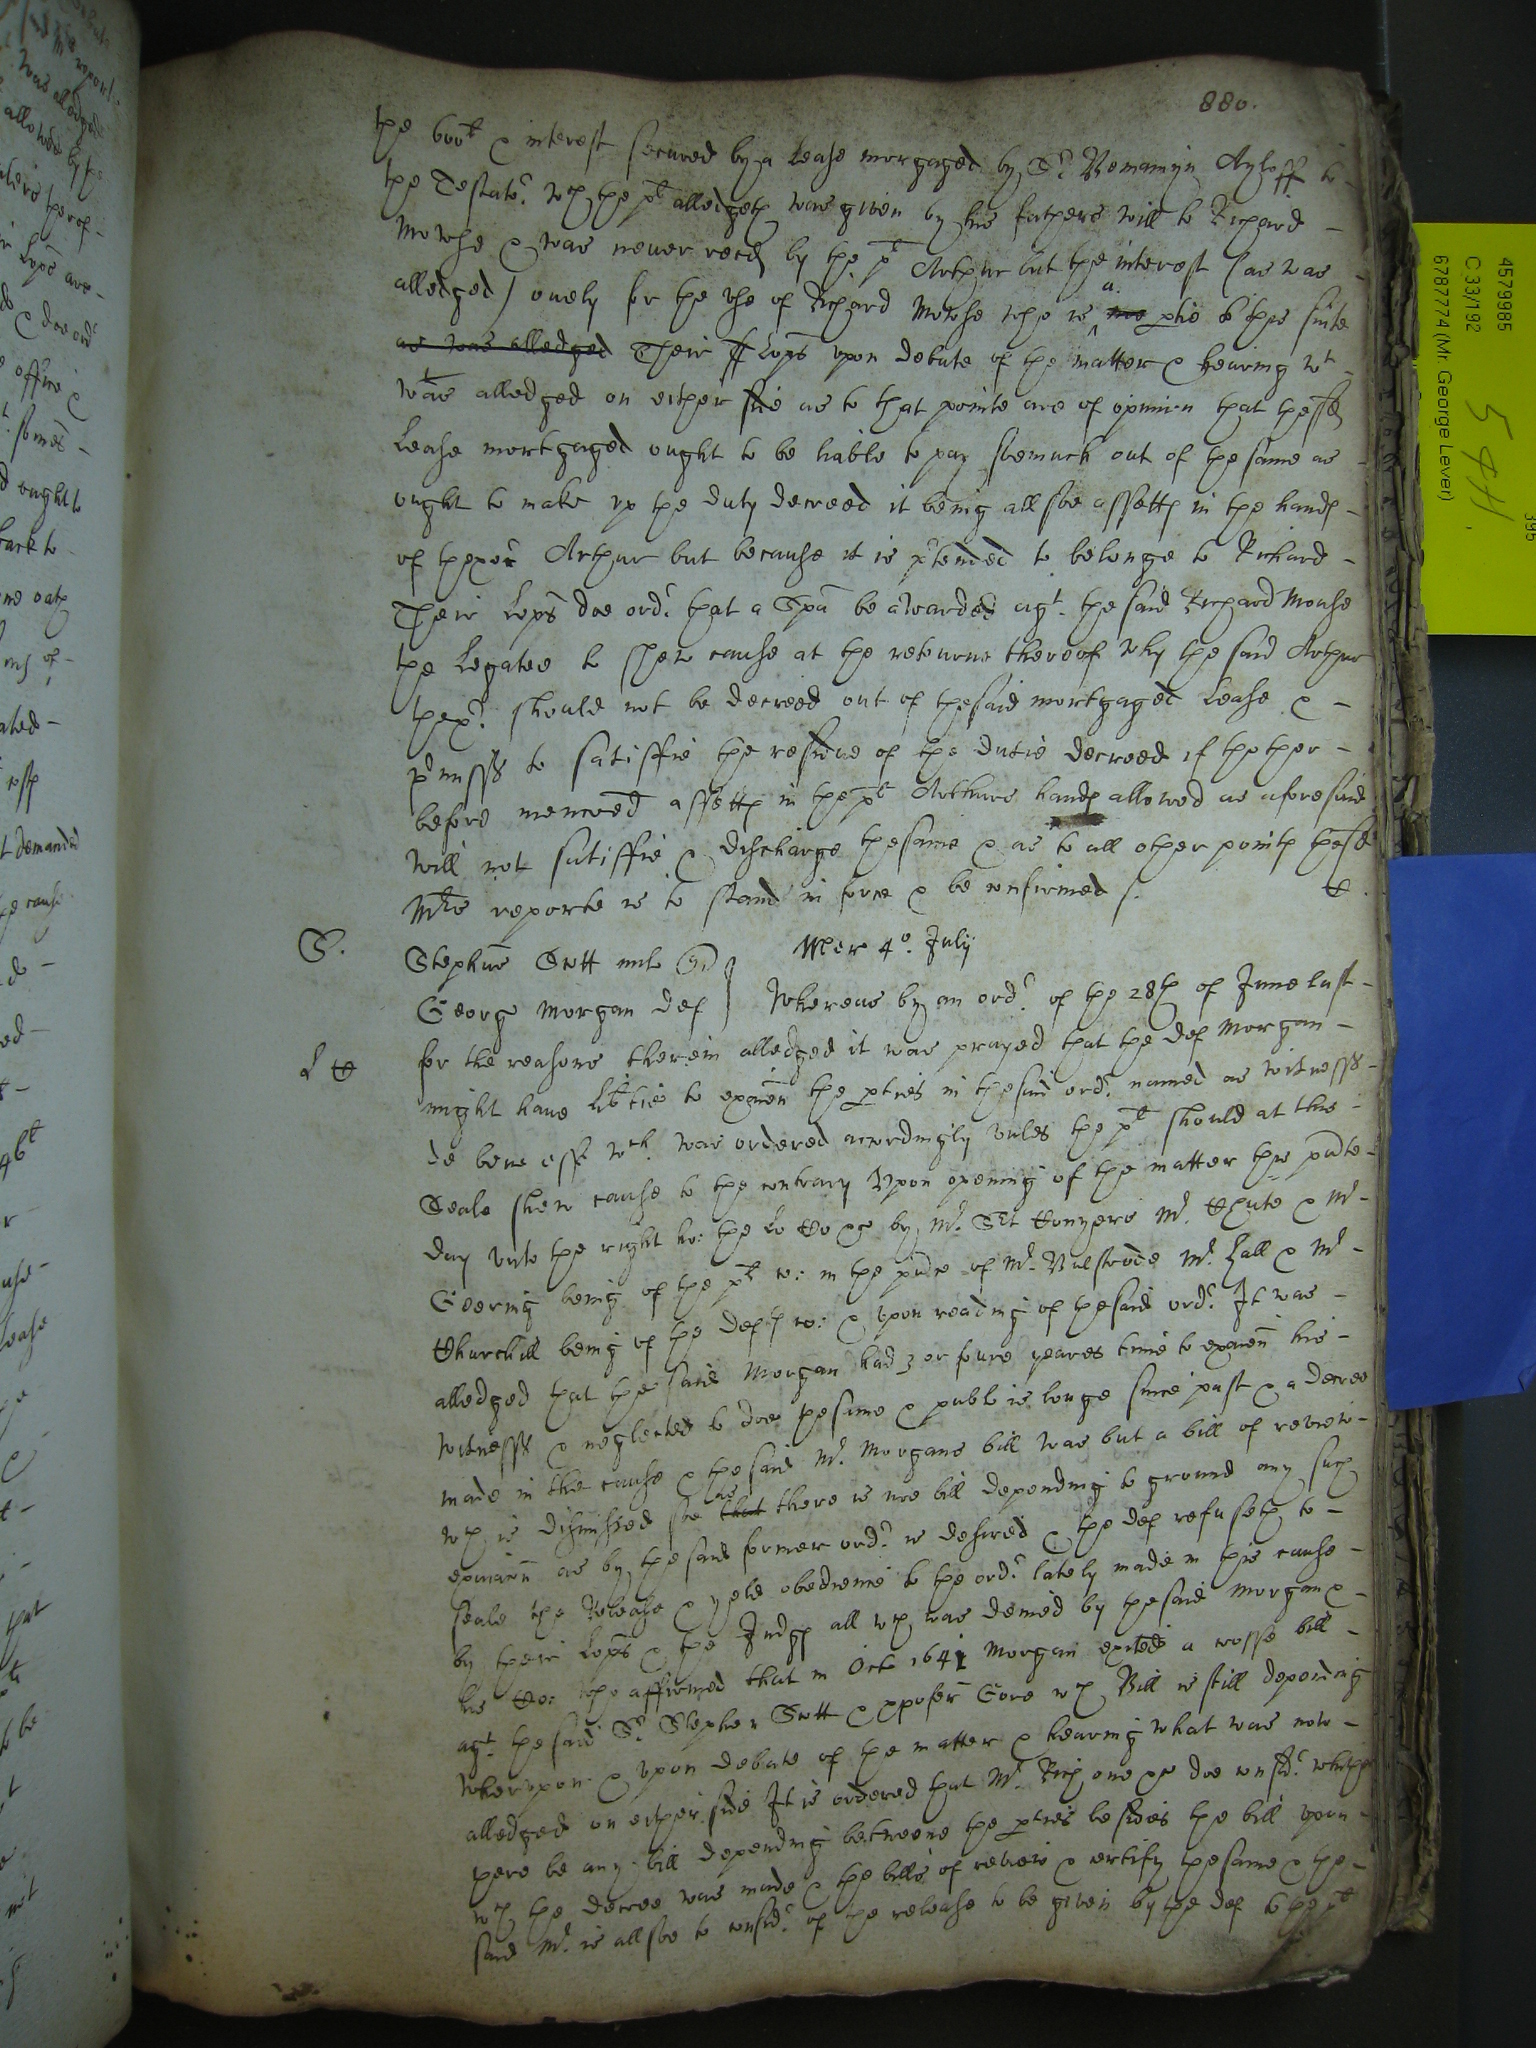 880.
the 600li & interest secured by a Lease morgaged by Sr Beniamyn Ayloff to
the Testator wch the plt alledgeth was given by his fathers will to Richard
Mowse & was neuer recd by the plt Arthur but the interest (as was
alledged) onely for the vse of Richard Mowse who is a noe ptie to this suite
as was alledged Their Lopps vpon debate of the matter & hearing wt
was alledged on either side as to that pointe are of opinion that the sd
Lease mortgaged ought to be liable to pay soemuch out of the same as
ought to make vp the duty decreed it being allsoe assetts in the hands
of thexor Arthur but because it is ptended to belonge to Richard
Their Lopps doe order that a Spa be awarded agt. the said Richard Mowse
the Legatee to shew cause at the returne thereof why the said Arthur
thexr should not be decreed out of the said mortgaged Lease &
pmisses to satisfie the residue of the dutie decreed if the other
before menconed assetts in the plt Arthurs hands allowed as aforesaid
will not satisfie & discharge the same & as to all other points the sd
Mrs reporte is to stand in force & be confirmed
S. Stephus Scott mil Quer Mer 4o. July
George Morgan def Whereas by an order of the 28th of June last
for the reasons therein alledged it was prayed that the def Morgan
might haue libtie to examen the pties in the said order named as witnesses
de bene esse wch was ordered accordingly vnles the plt should at this
Seale shew cause to the contrary Vpon opening of the matter this pnte
day vnto the right ho: the Lo Co &c by Mr. Sert Conyers Mr. Chute & Mr
Geering being of the plts co: in the pnce of Mr. Bulstrode Mr. Hall & Mr
Churchill being of the defts co: & vpon reading of the said order It was
alledged that the said Morgan had 3 or foure yeares time to examen his
witnesses & neglected to doe the same & publ is longe since past & a decree
made in the cause & the said Mr. Morgans bill was but a bill of review
wch is dismissed soe that as there is noe bill depending to ground any such
exmicon as by the said former order is desired & the def refuseth to
seale the Release & yeld obedience to the order lately made in this cause
by their Lopps & the Judges all wch was denied by the said Morgan &
his Co: who affirmed that in Oct 1641 Morgan exited a crosse bill
agt. the said Sr. Stephen Scott & Gore wch Bill is still depending
Wherevpon & vpon debate of the matter & hearing what was now
alledged on either side It is ordered that Mr. Rich one &c doe consider whether
there be any bill depending betweene the pties besides the bill vpon
wch the decree was made & the bills of review & certify the same & the
said Mr. is allsoe to consider of the release to be given by the def to the plt
4579985
C 33/192
6787774 (Mr. George Lever)
395